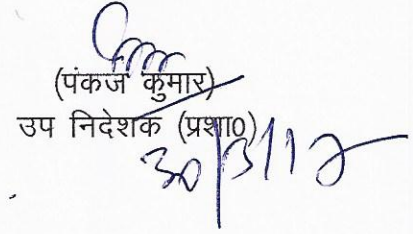 (पंकज कुमार)
उप निदेशक (प्रशा0)
30/3/12